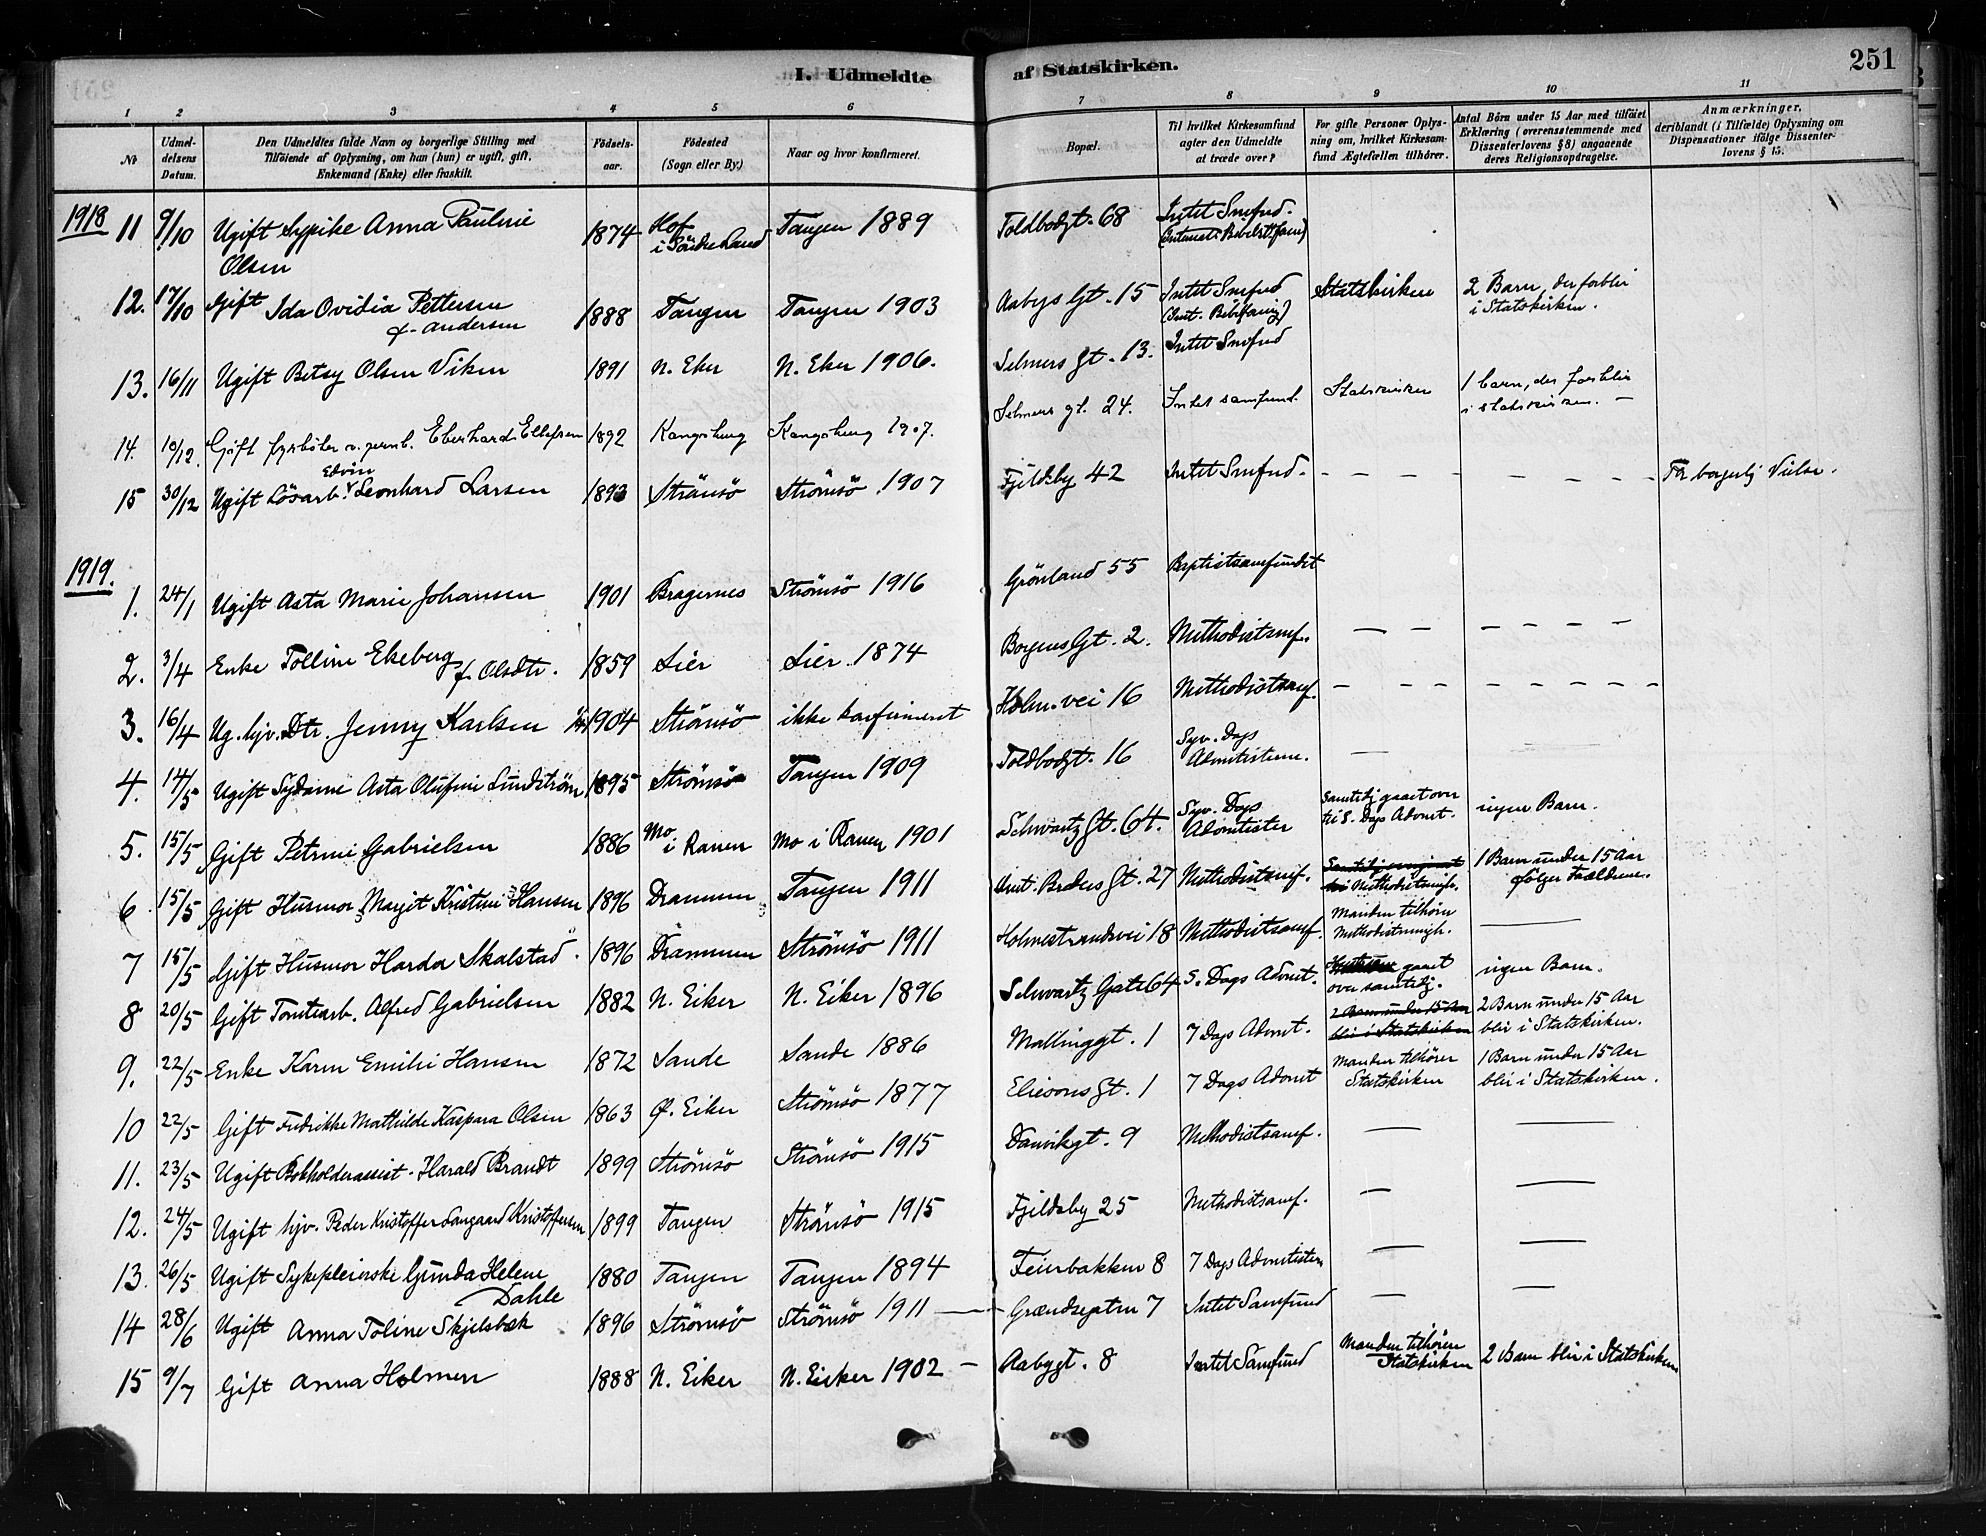 I. Udmeldte af Statskirken. 251
1 2 3 4 5 6 7 8 9 10 11
No
Udmeldelsens Datum.
Den Udmeldtes fulde Navn og borgerlige Stilling med Tilföiende af Oplysning, om han (hun) er ugift, gift, Enkemand (Enke) eller fraskilt.
Födselsaar.
Födested (Sogn eller By.)
Naar og hvor konfirmeret.
Bopæl.
Til hvilket Kirkesamfund agter den Udmeldte at træde over?
For gifte Personer Oplysning om, hvilket Kirkesamfund Ægtefællen tilhörer.
Antal Börn under 15 Aar med tilföiet Erklæring (overensstemmende med Dissenterlovens § 8) angaaende deres Religionsopdragelse.
Anmærkninger, deriblandt (i Tilfælde) Oplysning om Dispensationer ifölge Dissenterlovens § 15.
1918
11 9/10 Ugift Sypike Anna Pauline Olsen 1874 Hof i Söndre Land Tangen 1889 Toldbodgt. 68 Intet Smfnd.
12. 17/10 Gift Ida Ovidia Pettersen f. Andersen 1888 Tangen Tangen 1903 Aabys Gt. 15 Intet Smfnd Statskirken 2 Barn, der forblir i Statskirken.
13. 16/11 Ugift Betsy Olsen Viken 1891 N. Eker N. Eker 1906. Selmers Gt. 13. Intet Smfnd
14. 10/12. Gift fyrböter v. jernb. Eberhard Ellefsen 1892 Kongsberg Kongsberg 1907. Selmers gt. 24. Intet samfund. Statskirken 1 barn, der forblir i statskirken. —
15 30/12 Ugift Lösarb. Edvin Leonhard Larsen 1893 Strömsö Strömsö 1907 Fjeldsby 42 Intet Smfnd. - - - - - - - - Før borgerlig Vielse.
1919.
1. 24/1 Ugift Asta Marie Johansen 1901 Bragernes Strömsö 1916 Grönland 55 Baptistsamfundet
2. 3/4 Enke Tolline Ekeberg f. Olsdtr. 1859 Lier Lier 1874 Borgens Gt. 2. Methodistsamf. — - - - - - -
3. 16/4 Ug. hjv. Dtr. Jenny Karlsen 1904 Strömsö ikke konfirmeret Holm. vei 16 Methodistsamf. - - - - - - - - - -
4. 14/5 Ugift Sydame Asta Olufine Lundström 1895 Strömsö Tangen 1909 Toldbodgt. 16 Syv. Dags Adventisterne. —
5. 15/5 Gift Petrine Gabrielsen 1886 Mo i Ranen Mo i Ranen 1901 Schwartz Gt. 64. Syv. Dags Adventister Samtidig gaaet over til S. Dags Advent. ingen Barn.
6 15/5 Gift Husmor Margit Kristine Hansen 1896 Drammen Tangen 1911 Gt. 27 Methodistsamf. Methodistmenigh. 1 Barn under 15 Aar følger Forældrene.
7 15/5 Gift Husmor Harda Skalstad. 1896 Drammen Strömsö 1911 Holmestrandsvei 18 Methodistsamf. Manden tilhører Methodistmenigh. —
8 20/5 Gift Tomtearb. Alfred Gabrielsen 1882 N. Eiker N. Eiker 1896 Schwartz Gate 64 S. Dags Advent. Hustruen gaaet over samtidig. ingen Barn.
9. 22/5 Enke Karen Emilie Hansen 1872 Sande Sande 1886 Mallinggt. 1 7 Dags Advent. 2 Barn under 15 Aar blir i Statskirken 2 Barn under 15 Aar blir i Statskirken.
10 22/5 Gift Fredrikke Mathilde Kaspara Olsen 1863 Ø. Eiker Strömsö 1877 Eliesons Gt. 1 7 Dags Advent Manden tilhører Statskirken 1 Barn under 15 Aar blir i Statskirken.
11. 23/5 Ugift Bokholderassist. Harald Brandt 1899 Strömsö Strömsö 1915 Danvikgt. 9 Methodistsamf. — —
12. 24/5 Ugift hjv. Peder Kristoffer Langaard Kristoffersen 1899 Tangen Strömsö 1915 Fjeldsby 25 Methodistsamf. — —
13. 26/5 Ugift Sykepleierske Gunda Helene Dahle 1880 Tangen Tangen 1894 Feierbakken 8 7 Dags Adventisten — —
14 28/6 Ugift Anna Toline Skjelsbæk 1896 Strömsö Strömsö 1911 — Grændsegaten 7 Intet Samfund — —
15 9/7 Gift Anna Holmen 1888 N. Eiker N. Eiker 1902 — Aabygt. 8 Intet Samfund Manden tilhører Statskirken 2 Barn blir i Statskirken